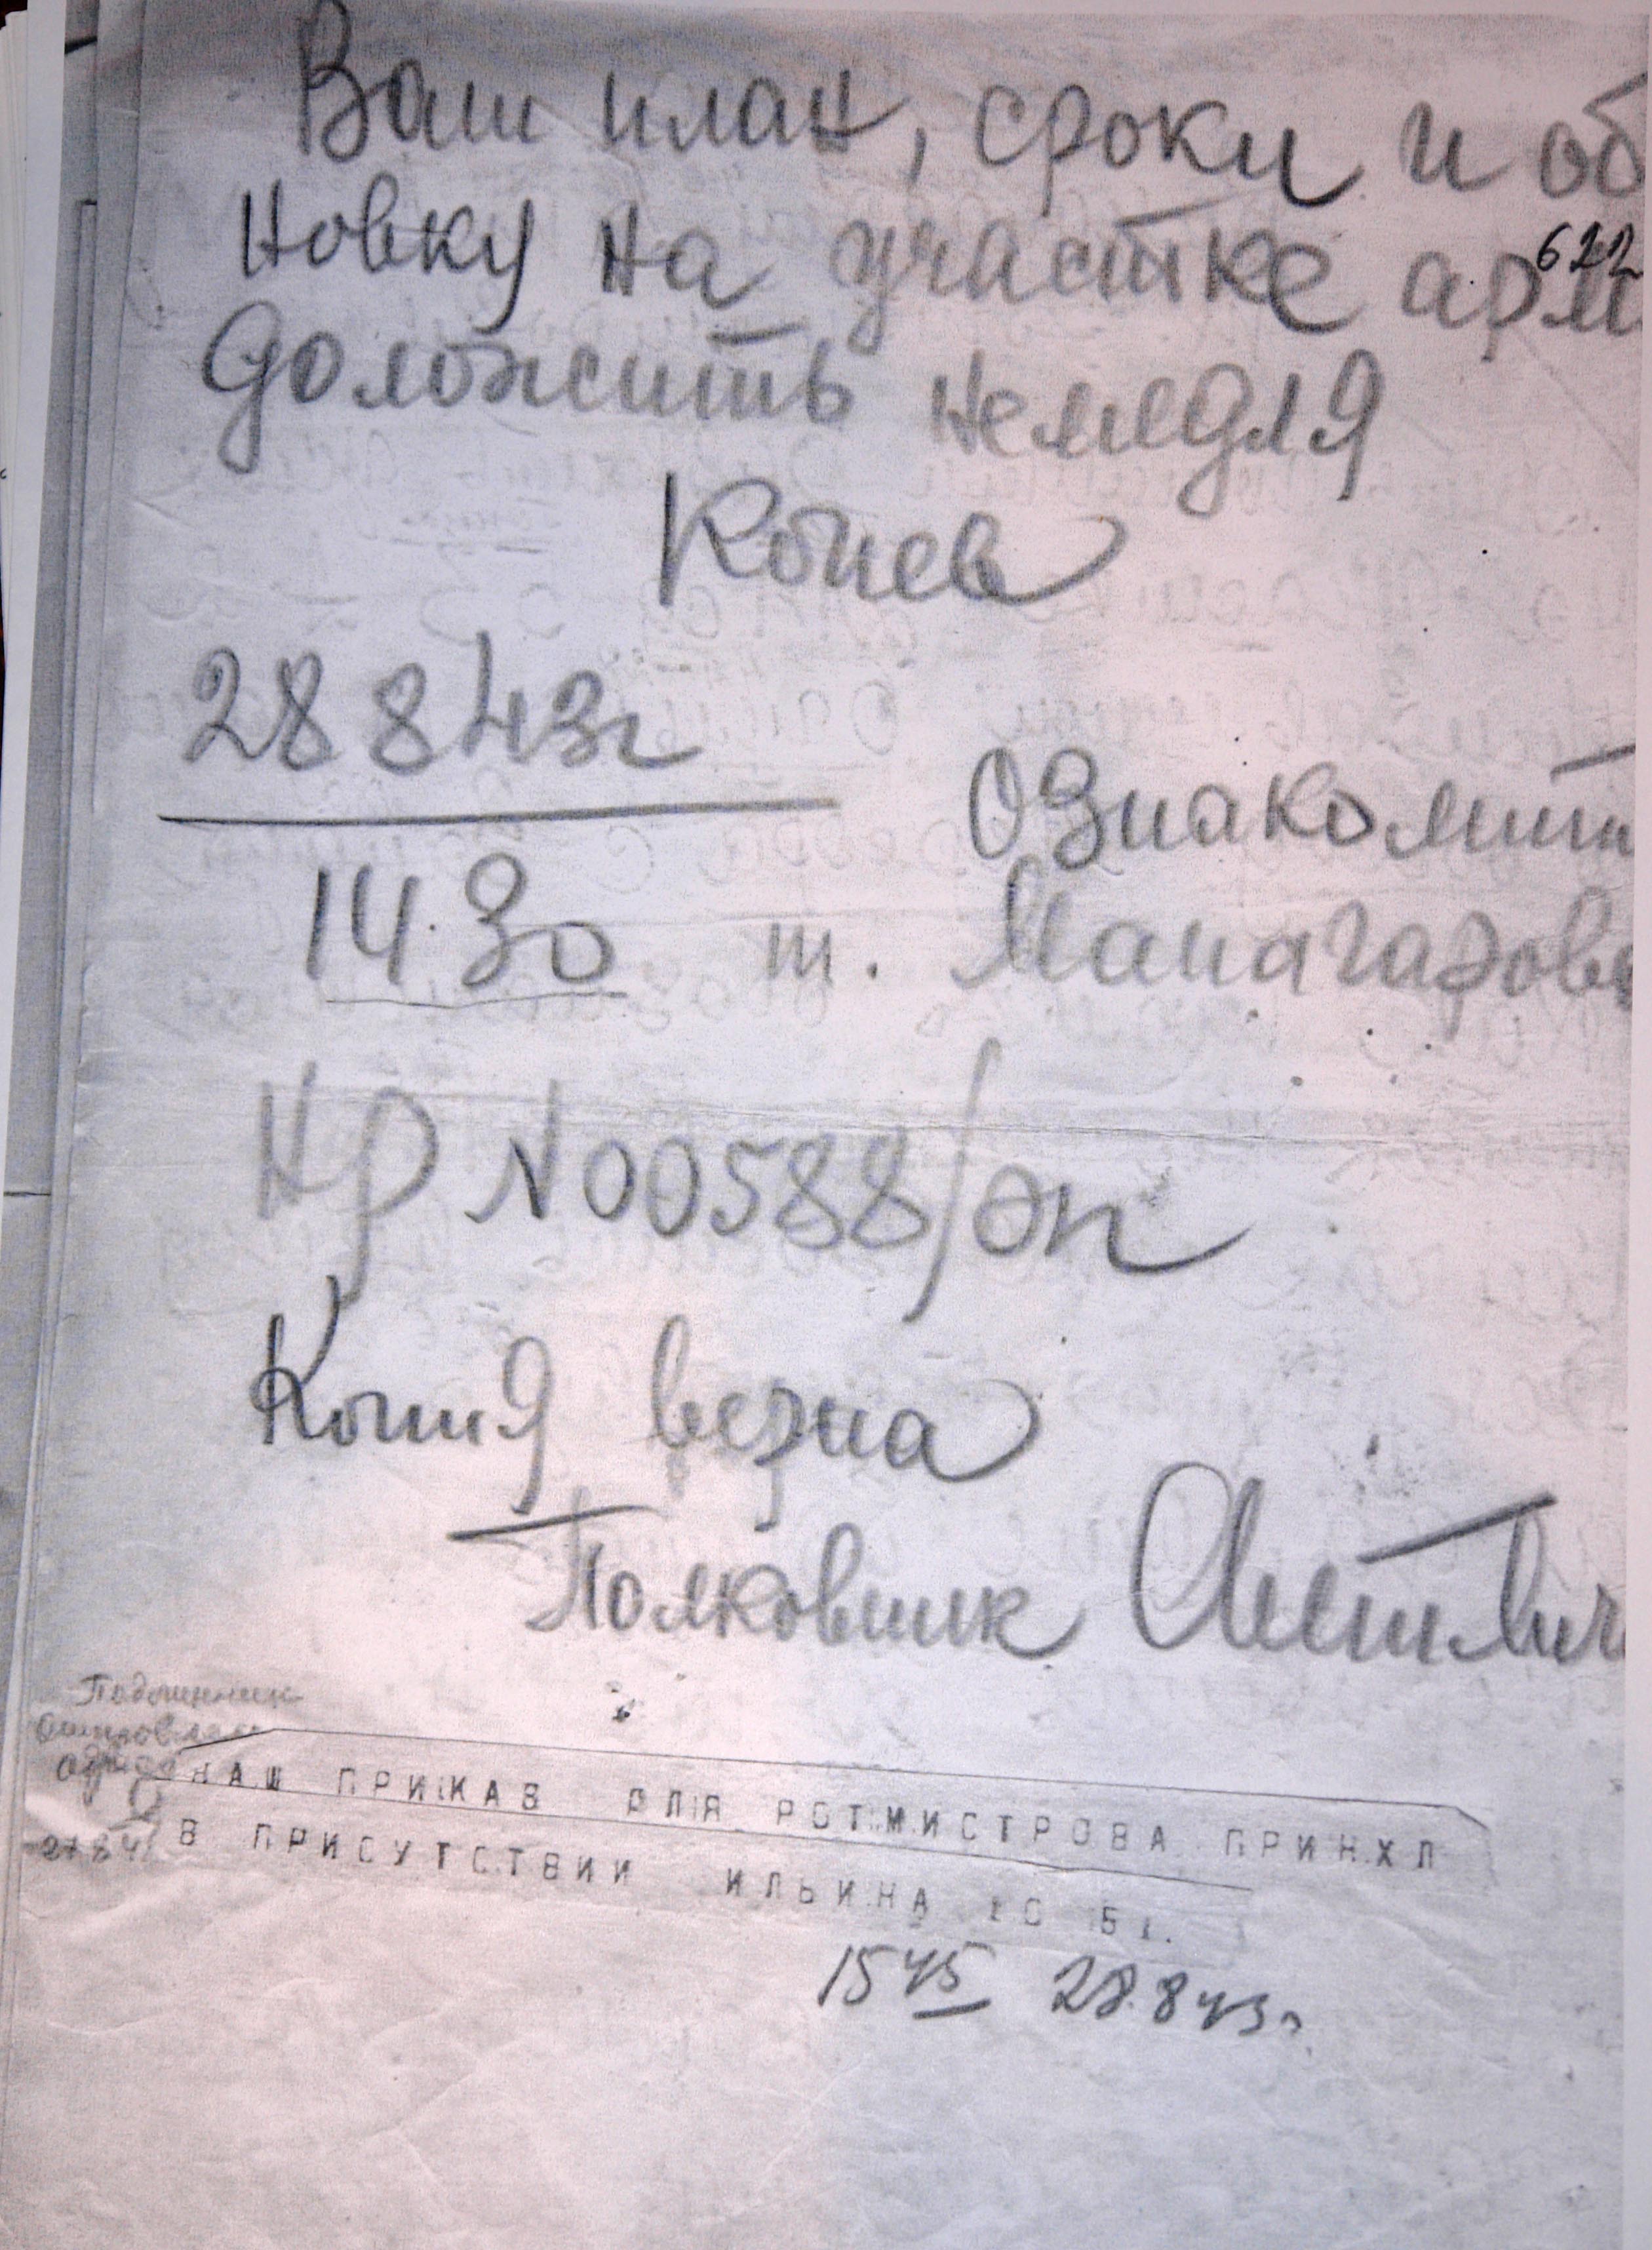 Ваш план, сроки и об
622
новку на участке арм
доложить немедля
Конев
28 8 43г
Ознакомит
14.30 т. Манагаров
НР N00588/оп
Копия верна
Полковник
Подлинник
НАШ ПРИКАЗ ДЛЯ РОТМИСТРОВА ПРИНХЛ
В ПРИСУТСТВИИ ИЛЬИНА
15 45 28.8 43г.